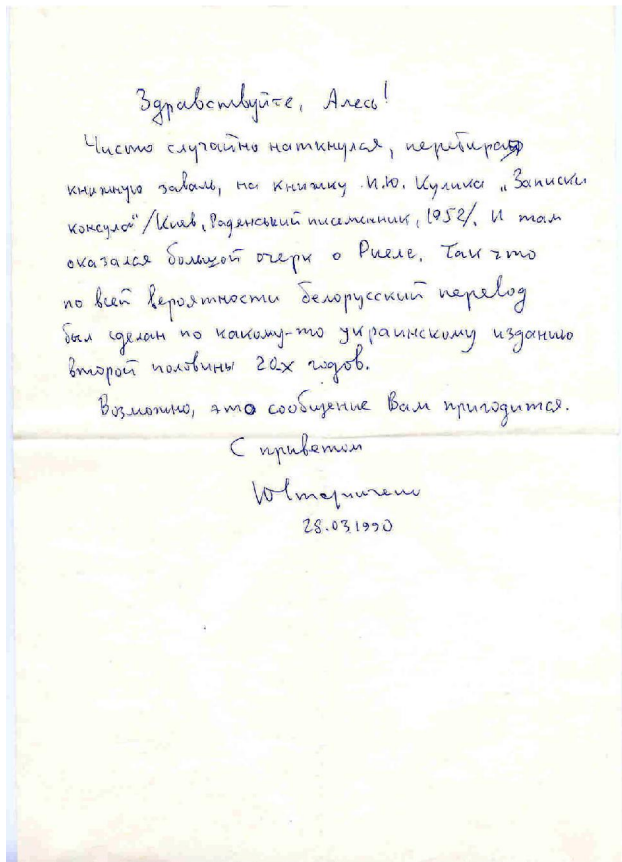 Здравствуйте, Алесь!
Чисто случайно наткнулся, перебирая
книжную заваль, на книжку И.Ю. Кулика „Записки
консула“ /Киев, Радянський письменник, 1952/. И там
оказался большой очерк о Риеле. Так что
по всей вероятности белорусский перевод
был сделан по какому-то украинскому изданию
второй половины 20х годов.
Возможно, это сообщение Вам пригодится.
С приветом
28.03.1990